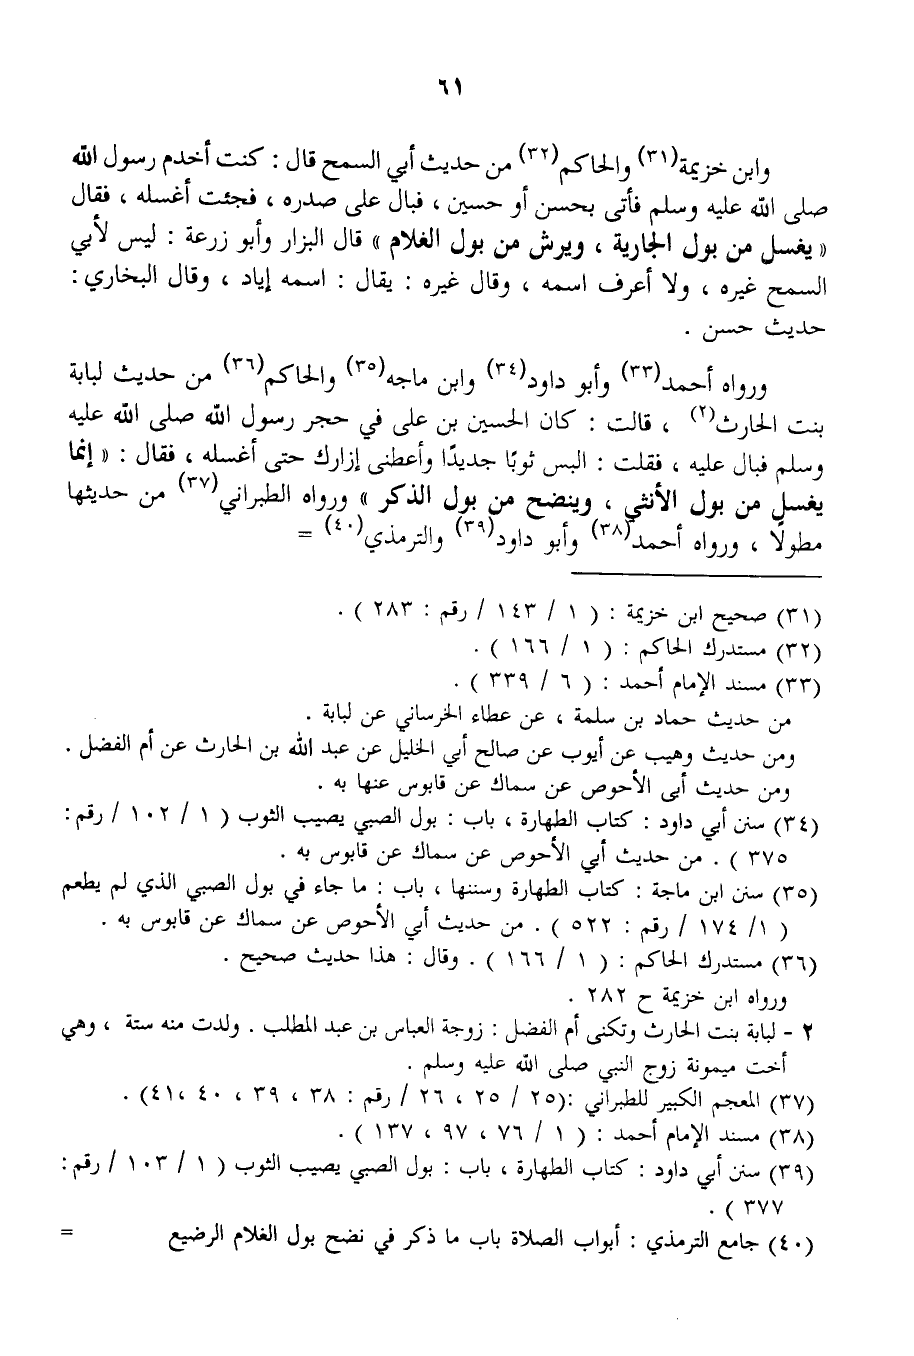 ٦١
وابن خزيمة(٣١) والحاكم(٣٢) من حديث أبي السمح قال : كنت أخدم رسول الله
صلى الله عليه وسلم فأتى بحسن أو حسين ، فبال على صدره ، فجئت أغسله ، فقال
« يغسل من بول الجارية ، ويرش من بول الغلام » قال البزار وأبو زرعة : ليس لأبي
السمح غيره ، ولا أعرف اسمه ، وقال غيره : يقال : اسمه إياد ، وقال البخاري :
حديث حسن .
ورواه أحمد(٣٣) وأبو داود(٣٤) وابن ماجه(٣٥) والحاكم(٣٦) من حديث لبابة
بنت الحارث(٢) ، قالت : كان الحسين بن على في حجر رسول الله صلى الله عليه
وسلم فبال عليه ، فقلت : البس ثوبًا جديدًا وأعطنى إزارك حتى أغسله ، فقال : « إنما
يغسل من بول الأنثى ، وينضح من بول الذكر » ورواه الطبراني(٣٧) من حديثها
مطولًا ، ورواه أحمد(٣٨) وأبو داود(٣٩) والترمذي(٤٠) =
(٣١) صحيح ابن خزيمة : ( ١ / ١٤٣ / رقم : ٢٨٣ ) .
(٣٢) مستدرك الحاكم : ( ١ / ١٦٦ ) .
(٣٣) مسند الإمام أحمد : ( ٦ / ٣٣٩ ) .
من حديث حماد بن سلمة ، عن عطاء الخرساني عن لبابة .
ومن حديث وهيب عن أيوب عن صالح أبي الخليل عن عبد الله بن الحارث عن أم الفضل .
ومن حديث أبى الأحوص عن سماك عن قابوس عنها به .
(٣٤) سنن أبي داود : كتاب الطهارة ، باب : بول الصبي يصيب الثوب ( ١ / ١٠٢ / رقم :
٣٧٥ ) . من حديث أبي الأحوص عن سماك عن قابوس به .
(٣٥) سنن ابن ماجة : كتاب الطهارة وسننها ، باب : ما جاء في بول الصبي الذي لم يطعم
( ١/ ١٧٤ / رقم : ٥٢٢ ) . من حديث أبي الأحوص عن سماك عن قابوس به .
(٣٦) مستدرك الحاكم : ( ١ / ١٦٦ ) . وقال : هذا حديث صحيح .
ورواه ابن خزيمة ح ٢٨٢ .
٢ - لبابة بنت الحارث وتكنى أم الفضل : زوجة العباس بن عبد المطلب . ولدت منه ستة ، وهي
أخت ميمونة زوج النبي صلى الله عليه وسلم .
(٣٧) المعجم الكبير للطبراني :(٢٥ / ٢٥ ، ٢٦ / رقم : ٣٨ ، ٣٩ ، ٤٠ ،٤١) .
(٣٨) مسند الإمام أحمد : ( ١ / ٧٦ ، ٩٧ ، ١٣٧ ) .
(٣٩) سنن أبي داود : كتاب الطهارة ، باب : بول الصبي يصيب الثوب ( ١ / ١٠٣ / رقم :
٣٧٧ ) .
(٤٠) جامع الترمذي : أبواب الصلاة باب ما ذكر في نضح بول الغلام الرضيع =